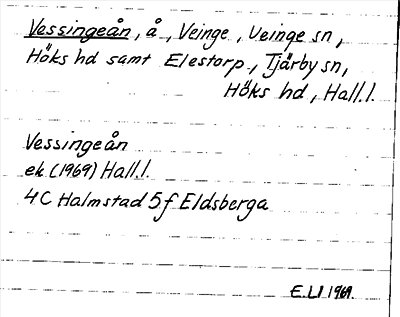 Vessingeån, å, Veinge, Veinge sn,
Höks hd samt Elestorp, Tjärby sn,
Höks hd, Hall.l.
Vessingeån
ek (1969) Hall.l.
4C Halmstad 5f Eldsberga
E.LI 1969.